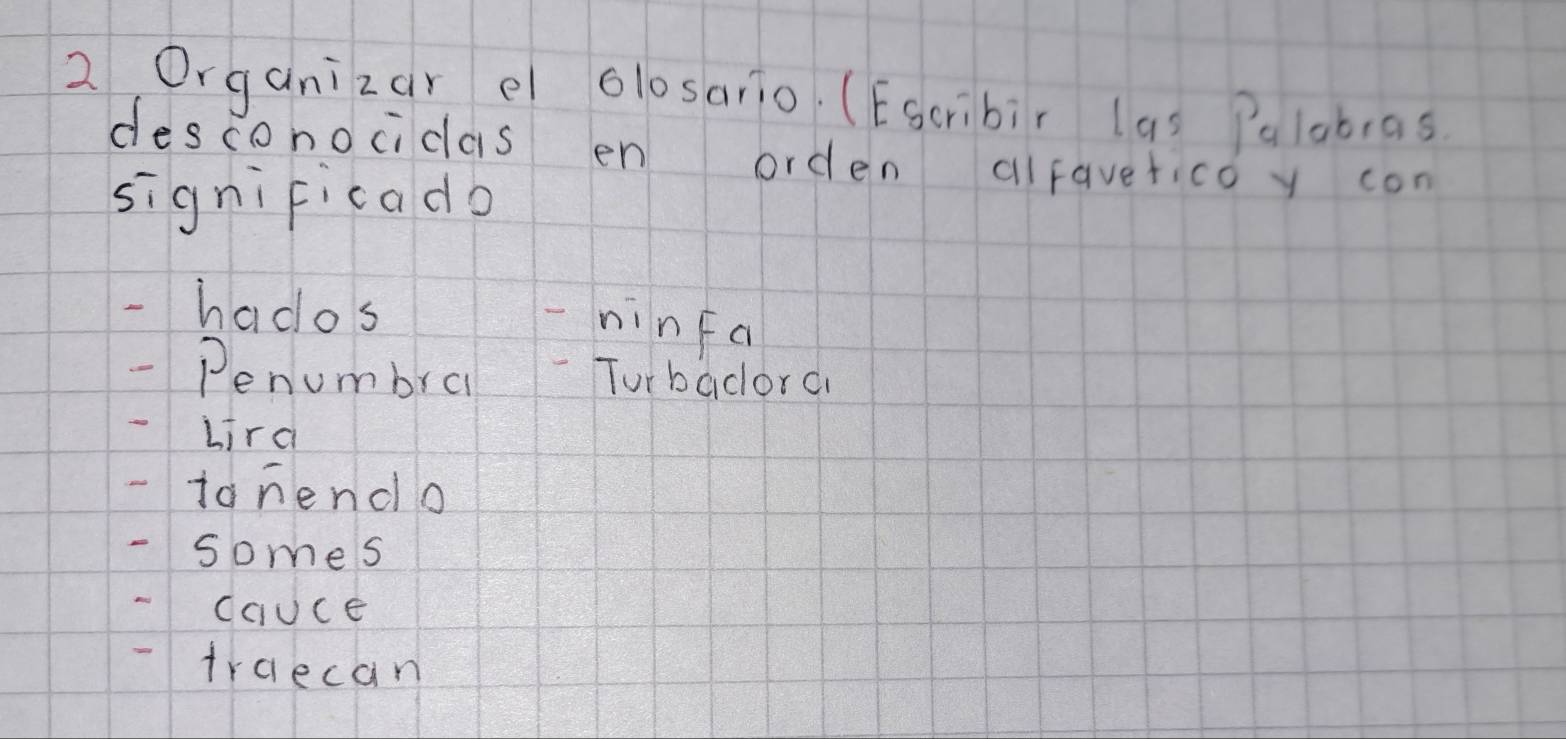 2 Organizar el Glosario. (Escribir las Palabras.
desconocidas en orden alfavetico y con
significado
- hados
- Penumbra
- Lira
- tañendo
- somes
- cauce
- traecan
- ninfa
- Turbadora